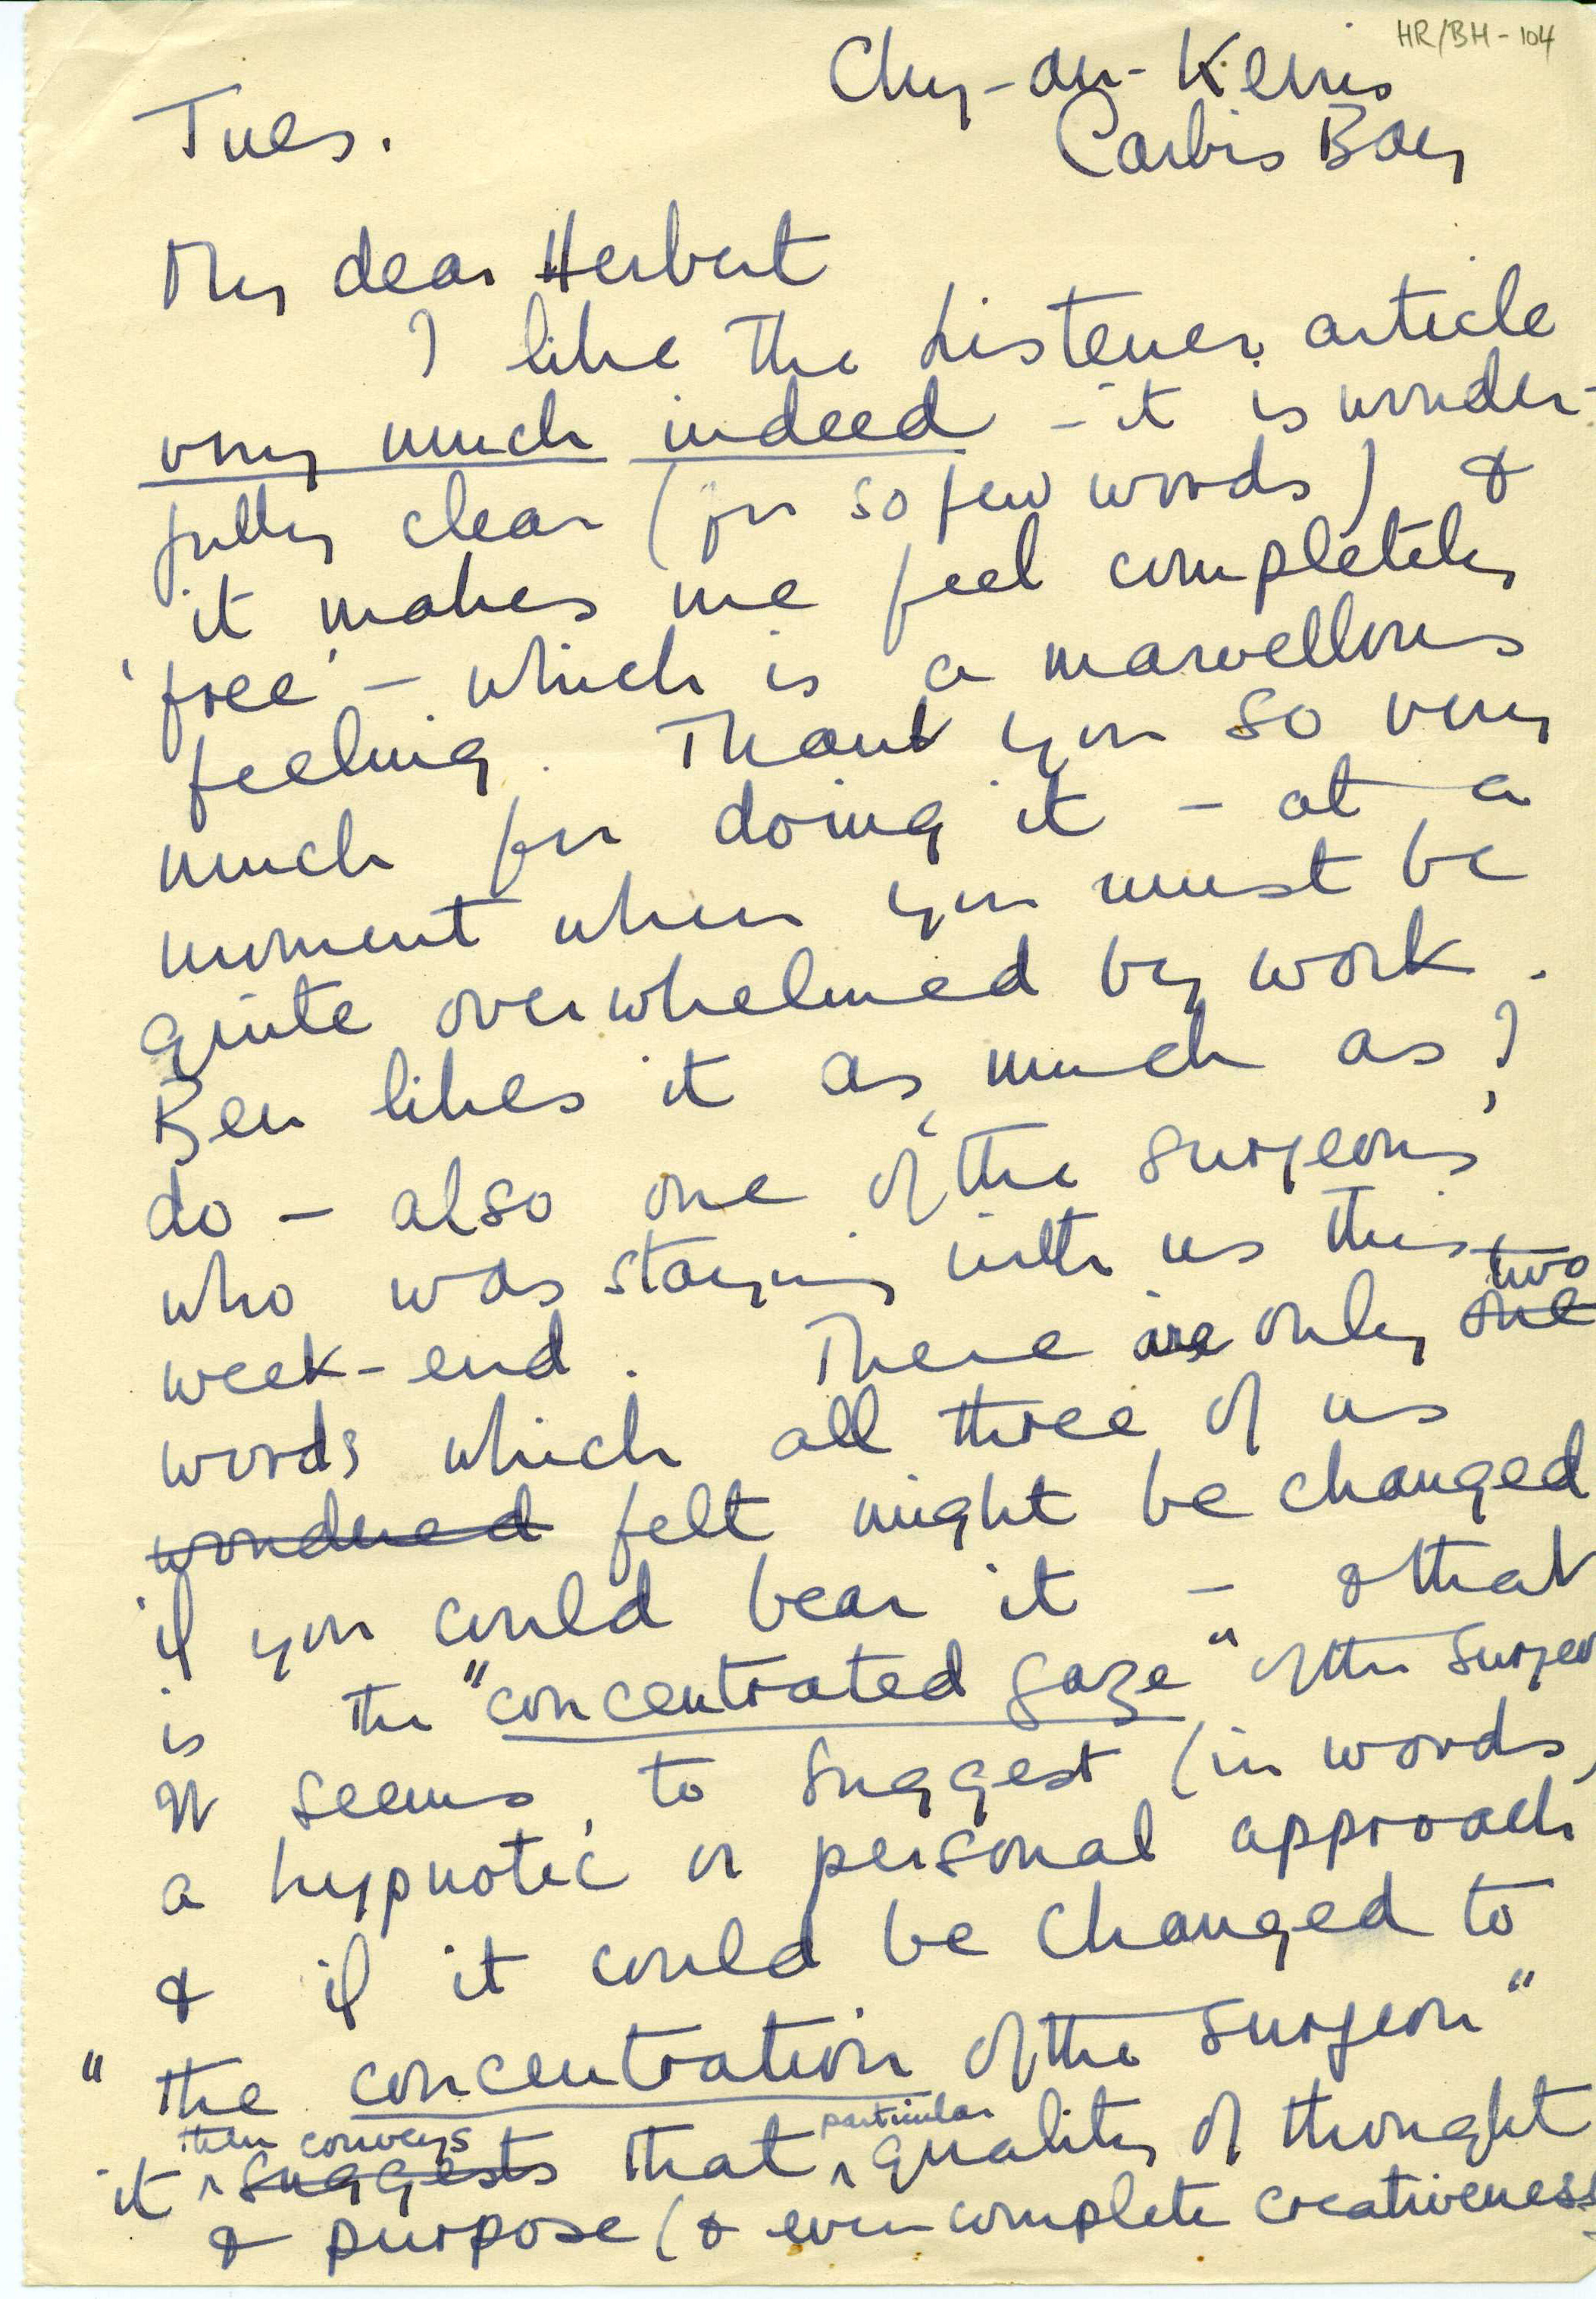 HR/BH - 104
Chy-an-Kerris
Carbis Bay
Tues.
My dear Herbert
I like the Listener article
very much indeed - it is wonder-
fully clear (for so few words) &
it makes me feel completely
'free' - which is a marvellous
feeling. Thank you so very
much for doing it - at a
moment when you must be
quite overwhelmed by work.
Ben likes it as much as I
do - also one of 'the surgeons'
who was staying with us this
week-end. There are only one two
words which all three of us
wondered felt might be changed
if you could bear it - & that
is the "concentrated gaze" of the surgeon
It seems to suggest (in words)
a hypnotic or personal approach
& if it could be changed to
"the concentration of the surgeon"
it suggests then conveys that particular quality of thought
& purpose (& even complete creativeness